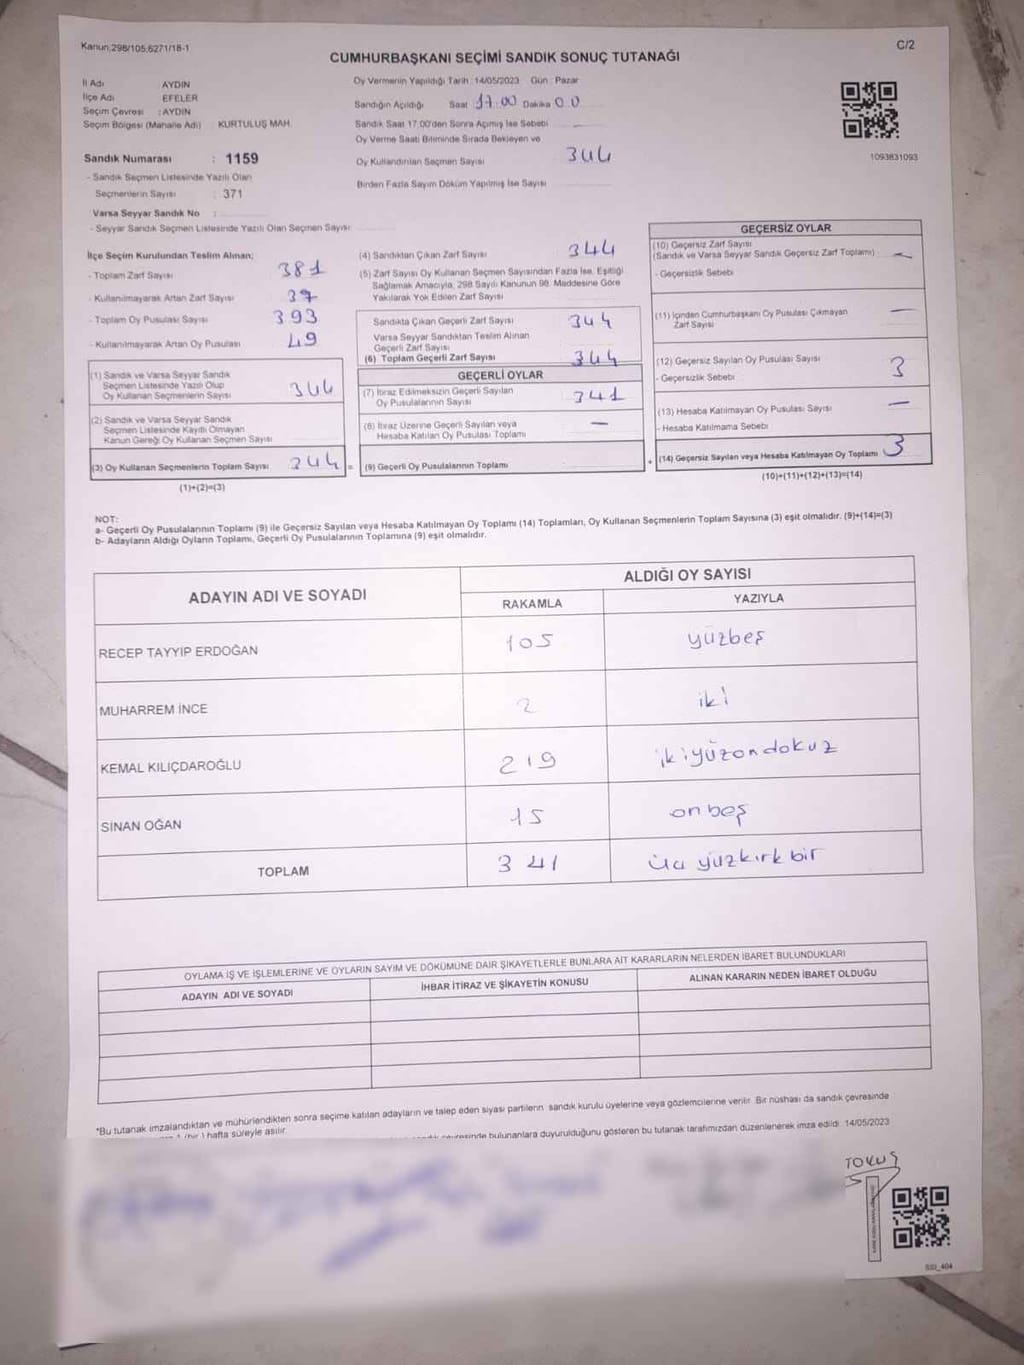 Kanun;298/105,6271/18-1
C/2
CUMHURBAŞKANI SEÇİMİ SANDIK SONUÇ TUTANAĞI
İl Adı AYDIN
İlçe Adı EFELER
Seçim Çevresi : AYDIN
Seçim Bölgesi (Mahalle Adı) : KURTULUŞ MAH.
Sandık Numarası : 1159
- Sandık Seçmen Listesinde Yazılı Olan
Seçmenlerin Sayısı : 371
Varsa Seyyar Sandık No :
- Seyyar Sandık Seçmen Listesinde Yazılı Olan Seçmen Sayısı:
Oy Vermenin Yapıldığı Tarih : 14/05/2023 Gün : Pazar
Sandığın Açıldığı Saat 17:00 Dakika 00
Sandık Saat 17:00'den Sonra Açımış İse Sebebi
Oy Verme Saati Bitiminde Sırada Bekleyen ve
Oy Kullandırılan Seçmen Sayısı 344
Birden Fazla Sayım Döküm Yapılmış İse Sayısı
1093831093
İlçe Seçim Kurulundan Teslim Alınan;
- Toplam Zarf Sayısı 381
- Kullanılmayarak Artan Zarf Sayısı 37
- Toplam Oy Pusulası Sayısı 393
- Kullanılmayarak Artan Oy Pusulası 49
(1) Sandık ve Varsa Seyyar Sandık
Seçmen Listesinde Yazılı Olup
Oy Kullanan Seçmenlerin Sayısı 344
(2) Sandık ve Varsa Seyyar Sandık
Seçmen Listesinde Kayıtlı Olmayan
Kanun Gereği Oy Kullanan Seçmen Sayısı
(3) Oy Kullanan Seçmenlerin Toplam Sayısı 344 =
(1)+(2)=(3)
(4) Sandıktan Çıkan Zarf Sayısı 344
(5) Zarf Sayısı Oy Kullanan Seçmen Sayısından Fazla İse, Eşitliği
Sağlamak Amacıyla, 298 Sayılı Kanunun 98. Maddesine Göre
Yakılarak Yok Edilen Zarf Sayısı
Sandıkta Çıkan Geçerli Zarf Sayısı 344
Varsa Seyyar Sandıktan Teslim Alınan
Geçerli Zarf Sayısı
(6) Toplam Geçerli Zarf Sayısı 344
GEÇERLİ OYLAR
(7) İtiraz Edilmeksizin Geçerli Sayılan
Oy Pusulalarının Sayısı 341
(8) İtiraz Üzerine Geçerli Sayılan veya
Hesaba Katılan Oy Pusulası Toplamı —
(9) Geçerli Oy Pusulalarının Toplamı +
GEÇERSİZ OYLAR
(10) Geçersiz Zarf Sayısı
(Sandık ve Varsa Seyyar Sandık Geçersiz Zarf Toplamı) —
- Geçersizlik Sebebi
(11) İçinden Cumhurbaşkanı Oy Pusulası Çıkmayan
Zarf Sayısı —
(12) Geçersiz Sayılan Oy Pusulası Sayısı 3
- Geçersizlik Sebebi
(13) Hesaba Katılmayan Oy Pusulası Sayısı —
- Hesaba Katılmama Sebebi
(14) Geçersiz Sayılan veya Hesaba Katılmayan Oy Toplamı 3
(10)+(11)+(12)+(13)=(14)
NOT:
a- Geçerli Oy Pusulalarının Toplamı (9) ile Geçersiz Sayılan veya Hesaba Katılmayan Oy Toplamı (14) Toplamları, Oy Kullanan Seçmenlerin Toplam Sayısına (3) eşit olmalıdır. (9)+(14)=(3)
b- Adayların Aldığı Oyların Toplamı, Geçerli Oy Pusulalarının Toplamına (9) eşit olmalıdır.
ADAYIN ADI VE SOYADI ALDIĞI OY SAYISI
RAKAMLA YAZIYLA
RECEP TAYYİP ERDOĞAN 105 yüzbeş
MUHARREM İNCE 2 iki
KEMAL KILIÇDAROĞLU 219 ikiyüzondokuz
SİNAN OĞAN 15 onbeş
TOPLAM 341 üç yüzkırk bir
OYLAMA İŞ VE İŞLEMLERİNE VE OYLARIN SAYIM VE DÖKÜMÜNE DAİR ŞİKAYETLERLE BUNLARA AİT KARARLARIN NELERDEN İBARET BULUNDUKLARI
ADAYIN ADI VE SOYADI İHBAR İTİRAZ VE ŞİKAYETİN KONUSU ALINAN KARARIN NEDEN İBARET OLDUĞU
*Bu tutanak imzalandıktan ve mühürlendikten sonra seçime katılan adayların ve talep eden siyasi partilerin sandık kurulu üyelerine veya gözlemcilerine verilir. Bir nüshası da sandık çevresinde
1 (bir) hafta süreyle asılır.
bulunanlara duyurulduğunu gösteren bu tutanak tarafımızdan düzenlenerek imza edildi. 14/05/2023
TOKUŞ
SSD_404